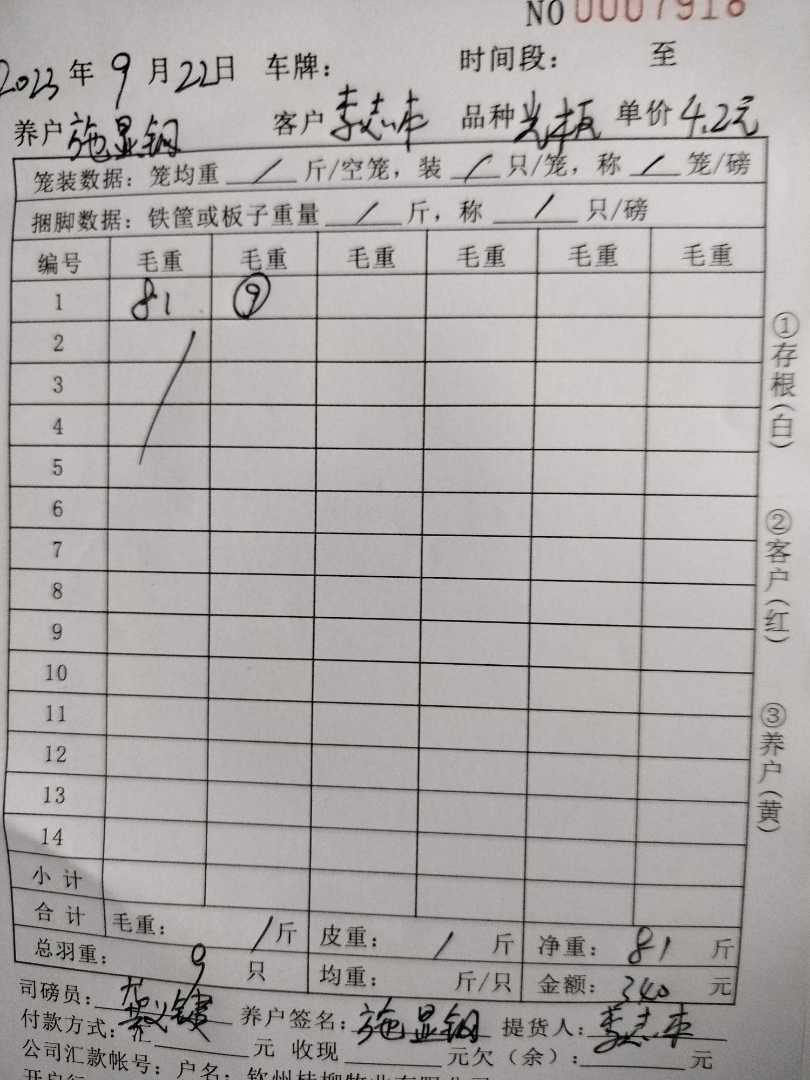 NO 0007918
2023年9月22日 车牌: 时间段: 至
养户 施显钢 客户 李志本 品种 光板 单价 4.2元
笼装数据: 笼均重 / 斤/空笼, 装 / 只/笼, 称 / 笼/磅
捆脚数据: 铁筐或板子重量 / 斤, 称 / 只/磅
编号 毛重 毛重 毛重 毛重 毛重 毛重
1 81 ⑨
2
3
4
5
6
7
8
9
10
11
12
13
14
小计
合计 毛重: / 斤 皮重: / 斤 净重: 81 斤
总羽重: 9 只 均重: 斤/只 金额: 340 元
司磅员: 养户签名: 施显钢 提货人: 李志本
付款方式: 汇 元 收现 元欠(余): 元
公司汇款帐号: 户名: 钦州桂柳牧业有限公司
开户行
①存根(白)
②客户(红)
③养户(黄)